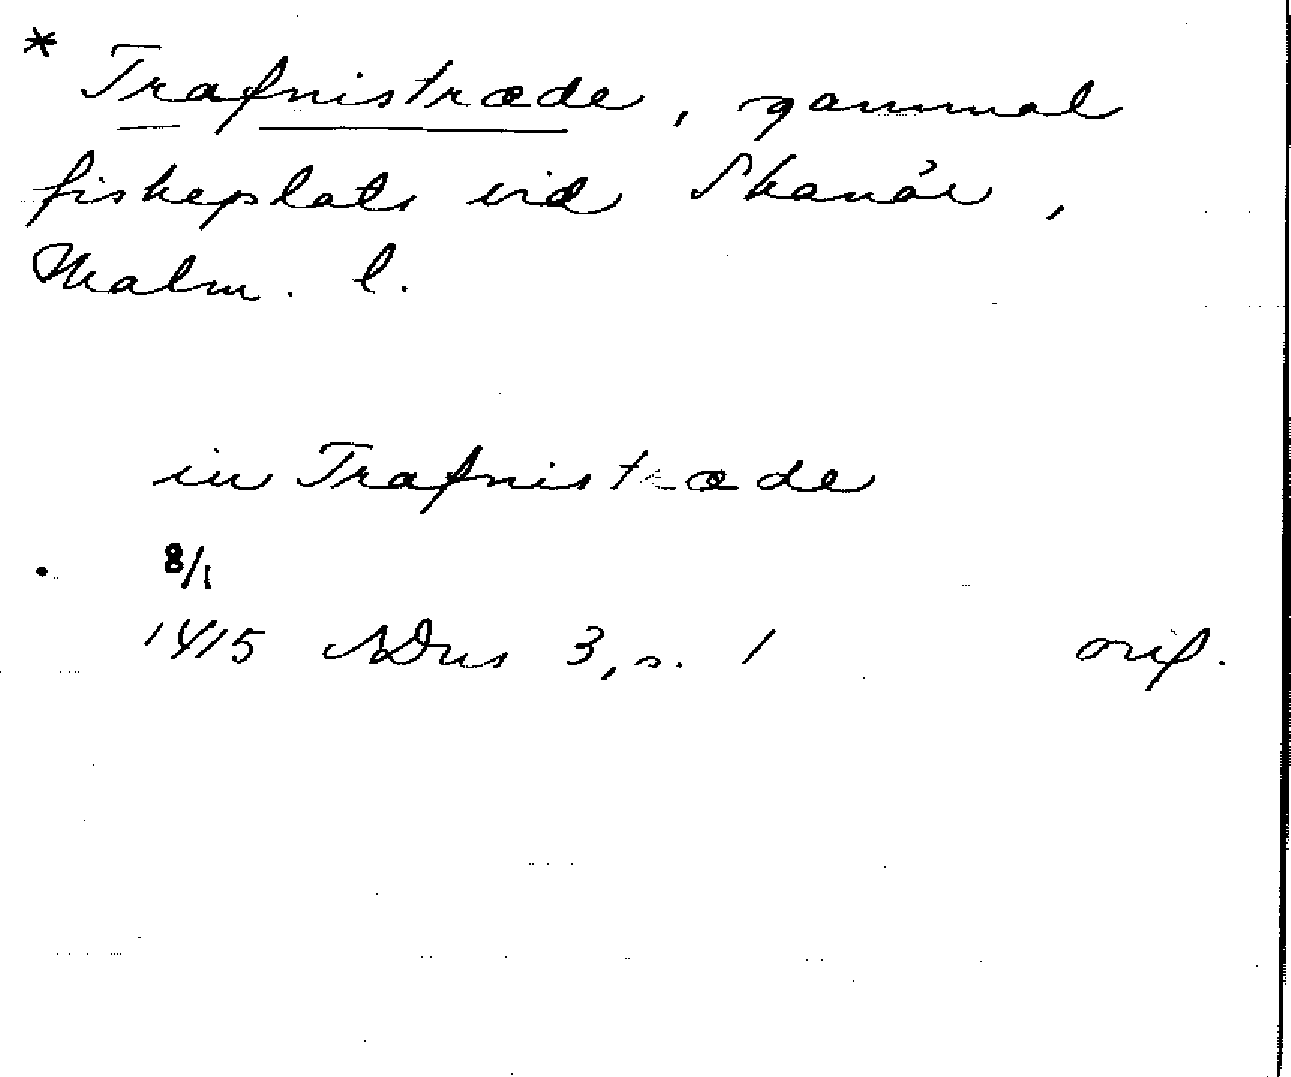 * Trafnistræde, gammal
fiskeplats vid Skanör,
Malm. l.
in Trafnistræde
8/1
1415 NDns 3, s. 1 orig.